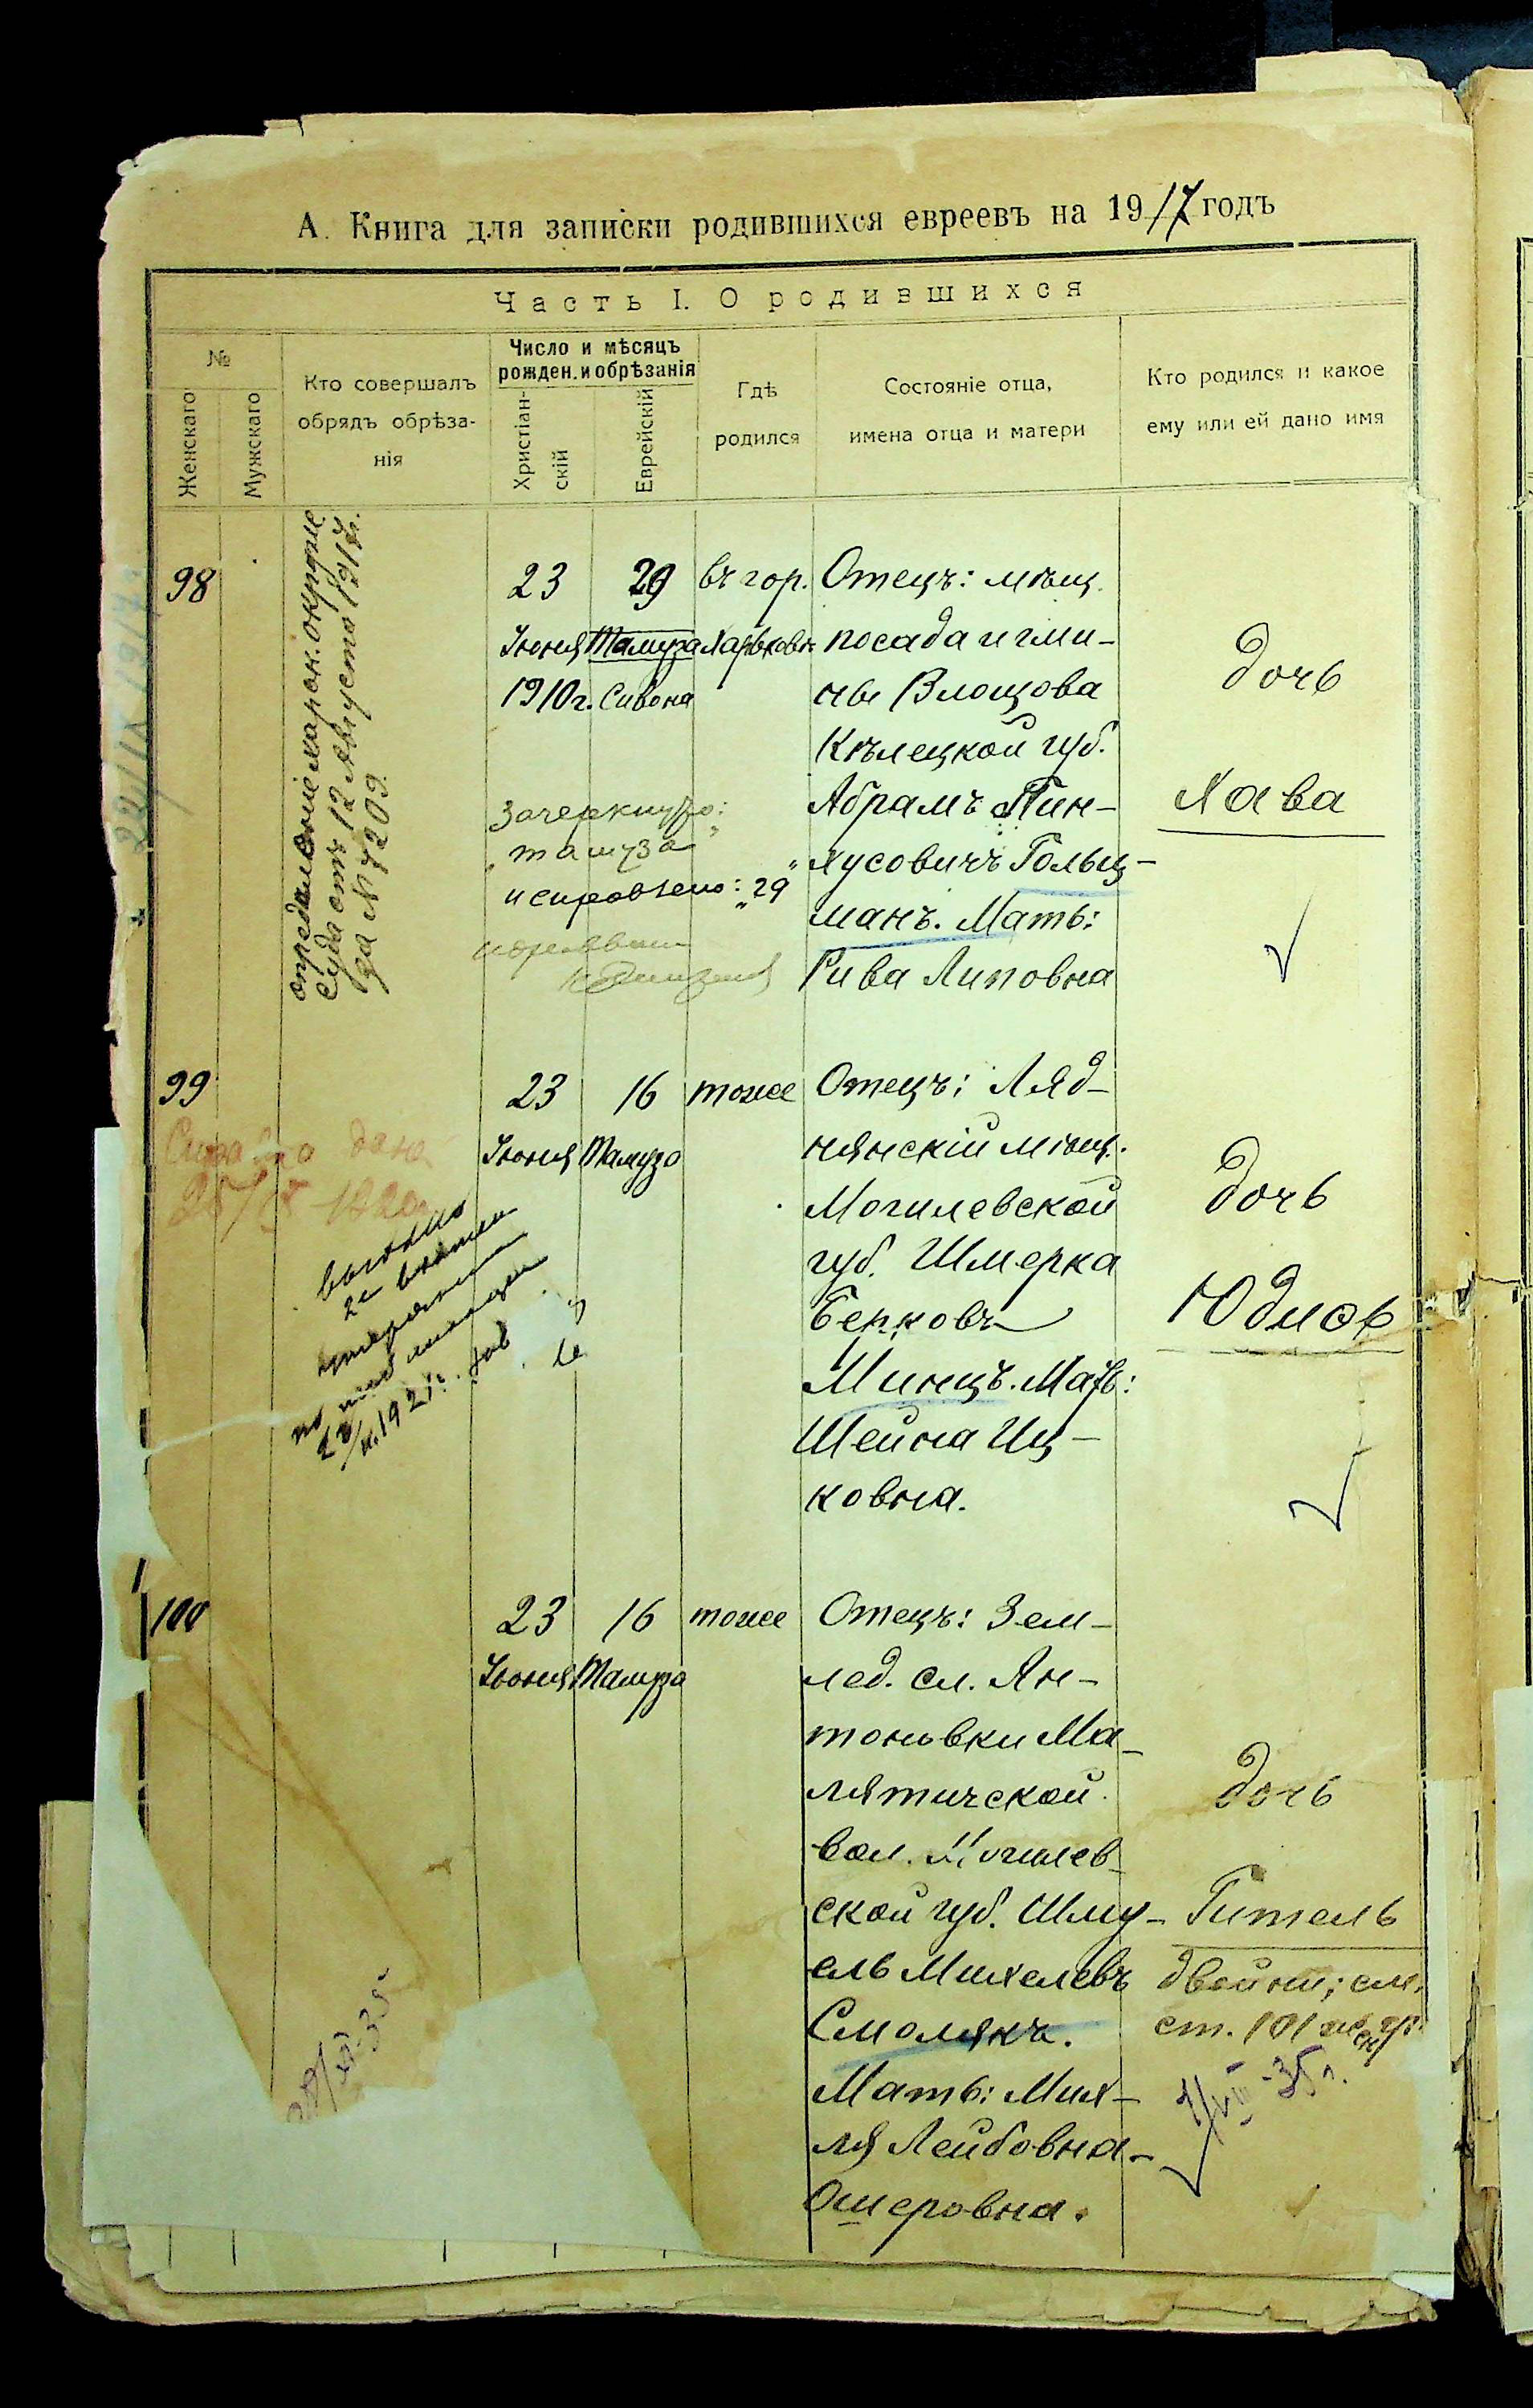 А. Книга для записки родившихся евреевъ на 1917 годъ
Часть I. О родившихся
№
Женскаго
Мужскаго
Кто совершалъ
обрядъ обрѣза-
нія
Число и мѣсяцъ
рожден. и обрѣзанія
Христіан-
скій
Еврейскій
Гдѣ
родился
Состояніе отца,
имена отца и матери
Кто родился и какое
ему или ей дано имя
98
опредѣленіе Харьк. окружн
суда отъ 12 Августа 1917 г.
за № 7209.
23
Іюня
1910 г.
29
Тамуза
Сивона
въ гор.
Харьковѣ
Отецъ: мѣщ.
посада и гми-
ны Влощова
Кѣлецкой губ.
Абрамъ Пин-
хусовичъ Гольц-
манъ. Мать:
Рива Липовна
дочь
Хава
Зачеркнуто:
"тамуза"
исправлено: "29"
99
23
Іюня
16
Тамуза
тоже
Отецъ: Ляд-
нянскій мѣщ.
Могилевской
губ. Шмерка
Берковъ
Минцъ. Мать:
Шейна Иц-
ковна.
дочь
Юдись
100
23
Іюня
16
Тамуза
тоже
Отецъ: Зем-
лед. сл. Ан-
тоновки Ма-
лятичской
вол. Могилев-
ской губ. Шму-
ель Михелевъ
Смолякъ.
Мать: Мих-
ля Лейбовна-
Ошеровна.
дочь
Гитель
двойни; см.
ст. 101